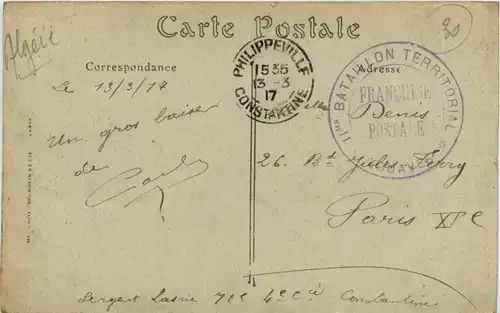 Algérie
30
Carte Postale
Correspondance
Adresse
PHILIPPEVILLE
15 35
13 - 3
17
CONSTANTINE
BATAILLON TERRITORIAL
FRANCHISE
POSTALE
Le 13/3/17
Un gros baiser
de
Benis
26. Bd Jules Ferry
Paris XIe
Sergent 4e Cie Constantine